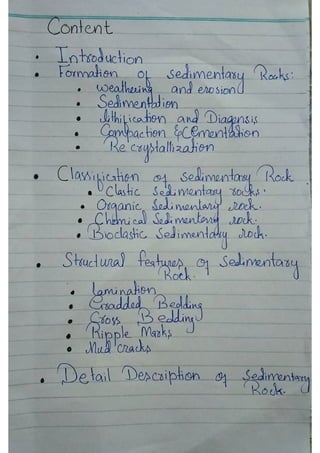 Content
• Introduction
• Formation of sedimentary Rocks:
• Weathering and erosion
• Sedimentation
• Lithification and Diagnsis
• Compaction & Cementation
• Recrystallization
• Classification of sedimentary Rock
• Clastic sedimentary rocks.
• Organic Sedimentary rock.
• Chemical Sedimentary rock.
• Bioclastic Sedimentary rock.
• Structural features of Sedimentary
Rock.
• Lamination
• Gradded Bedding
• Cross Bedding
• Ripple Marks
• Mud cracks
• Detail Description of Sedimentary
Rock.